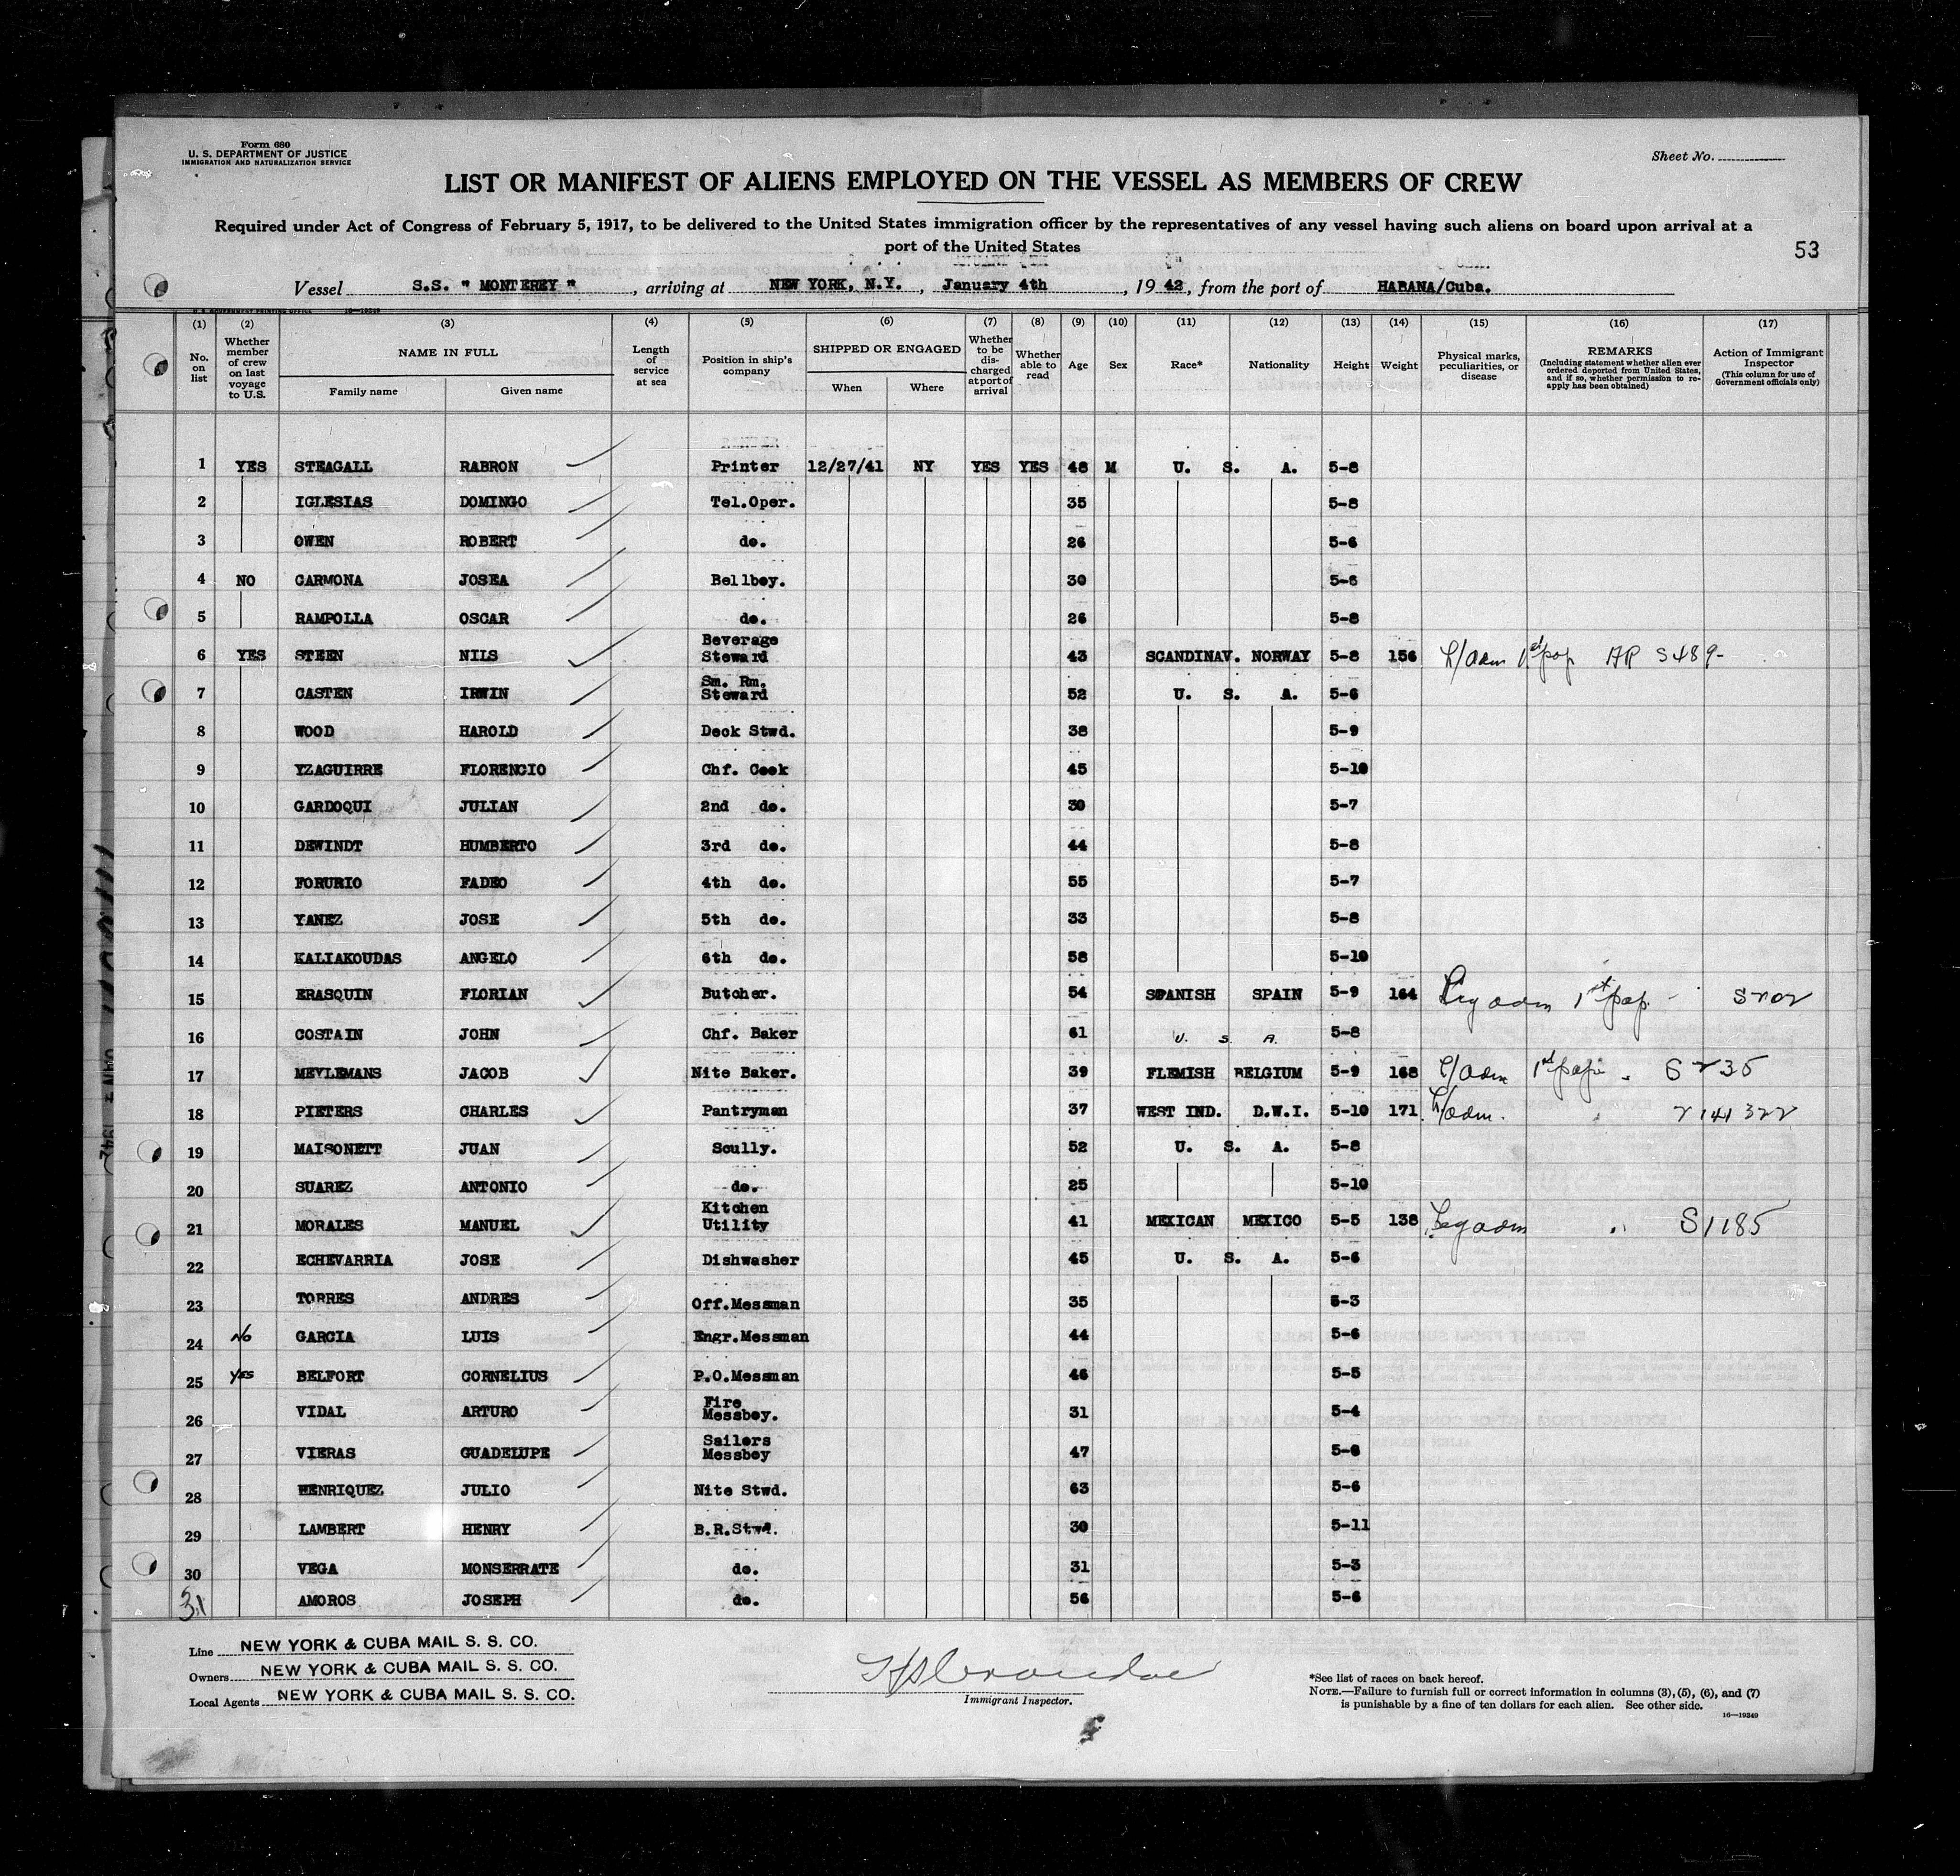 Form 680
U. S. DEPARTMENT OF JUSTICE
IMMIGRATION AND NATURALIZATION SERVICE
Sheet No.
LIST OR MANIFEST OF ALIENS EMPLOYED ON THE VESSEL AS MEMBERS OF CREW
Required under Act of Congress of February 5, 1917, to be delivered to the United States immigration officer by the representatives of any vessel having such aliens on board upon arrival at a
port of the United States
53
Vessel S.S. " MONTEREY " , arriving at NEW YORK, N.Y. , January 4th , 19 42, from the port of HABANA/Cuba.
U. S. GOVERNMENT PRINTING OFFICE 16—19349
(1) (2) (3) (4) (5) (6) (7) (8) (9) (10) (11) (12) (13) (14) (15) (16) (17)
No. on list
Whether member of crew on last voyage to U.S.
NAME IN FULL
Family name Given name
Length of service at sea
Position in ship's company
SHIPPED OR ENGAGED
When Where
Whether to be dis-charged at port of arrival
Whether able to read
Age Sex Race* Nationality Height Weight
Physical marks, peculiarities, or disease
REMARKS
(Including statement whether alien ever ordered deported from United States, and if so, whether permission to re-apply has been obtained)
Action of Immigrant Inspector
(This column for use of Government officials only)
1 YES STEAGALL RABRON Printer 12/27/41 NY YES YES 48 M U. S. A. 5-8
2 IGLESIAS DOMINGO Tel.Oper. 35 5-8
3 OWEN ROBERT do. 26 5-6
4 NO CARMONA JOSEA Bellboy. 30 5-6
5 RAMPOLLA OSCAR do. 26 5-8
6 YES STEEN NILS Beverage Steward 43 SCANDINAV. NORWAY 5-8 156 L/adm 1st pap AR S489-
7 CASTEN IRWIN Sm. Rm. Steward 52 U. S. A. 5-6
8 WOOD HAROLD Deck Stwd. 38 5-9
9 YZAGUIRRE FLORENCIO Chf. Cook 45 5-10
10 GARDOQUI JULIAN 2nd do. 30 5-7
11 DEWINDT HUMBERTO 3rd do. 44 5-8
12 FORURIO FADEO 4th do. 55 5-7
13 YANEZ JOSE 5th do. 33 5-8
14 KALIAKOUDAS ANGELO 6th do. 58 5-10
15 ERASQUIN FLORIAN Butcher. 54 SPANISH SPAIN 5-9 164 Leg adm 1st pap.
16 COSTAIN JOHN Chf. Baker 61 U. S. A. 5-8
17 MEVLEMANS JACOB Nite Baker. 39 FLEMISH BELGIUM 5-9 168 L/adm
18 PIETERS CHARLES Pantryman 37 WEST IND. D.W.I. 5-10 171 L/adm.
19 MAISONETT JUAN Scully. 52 U. S. A. 5-8
20 SUAREZ ANTONIO do. 25 5-10
21 MORALES MANUEL Kitchen Utility 41 MEXICAN MEXICO 5-5 138 Leg adm S1185
22 ECHEVARRIA JOSE Dishwasher 45 U. S. A. 5-6
23 TORRES ANDRES Off.Messman 35 5-3
24 No GARCIA LUIS Engr.Messman 44 5-6
25 Yes BELFORT CORNELIUS P.O.Messman 46 5-5
26 VIDAL ARTURO Fire Messboy. 31 5-4
27 VIERAS GUADELUPE Sailors Messboy 47
28 HENRIQUEZ JULIO Nite Stwd. 63 5-6
29 LAMBERT HENRY B.R.Stwd. 30 5-11
30 VEGA MONSERRATE do. 31 5-3
31 AMOROS JOSEPH do. 56 5-6
Line NEW YORK & CUBA MAIL S. S. CO.
Owners NEW YORK & CUBA MAIL S. S. CO.
Local Agents NEW YORK & CUBA MAIL S. S. CO.
Immigrant Inspector.
*See list of races on back hereof.
NOTE.—Failure to furnish full or correct information in columns (3), (5), (6), and (7)
is punishable by a fine of ten dollars for each alien. See other side.
16—19349